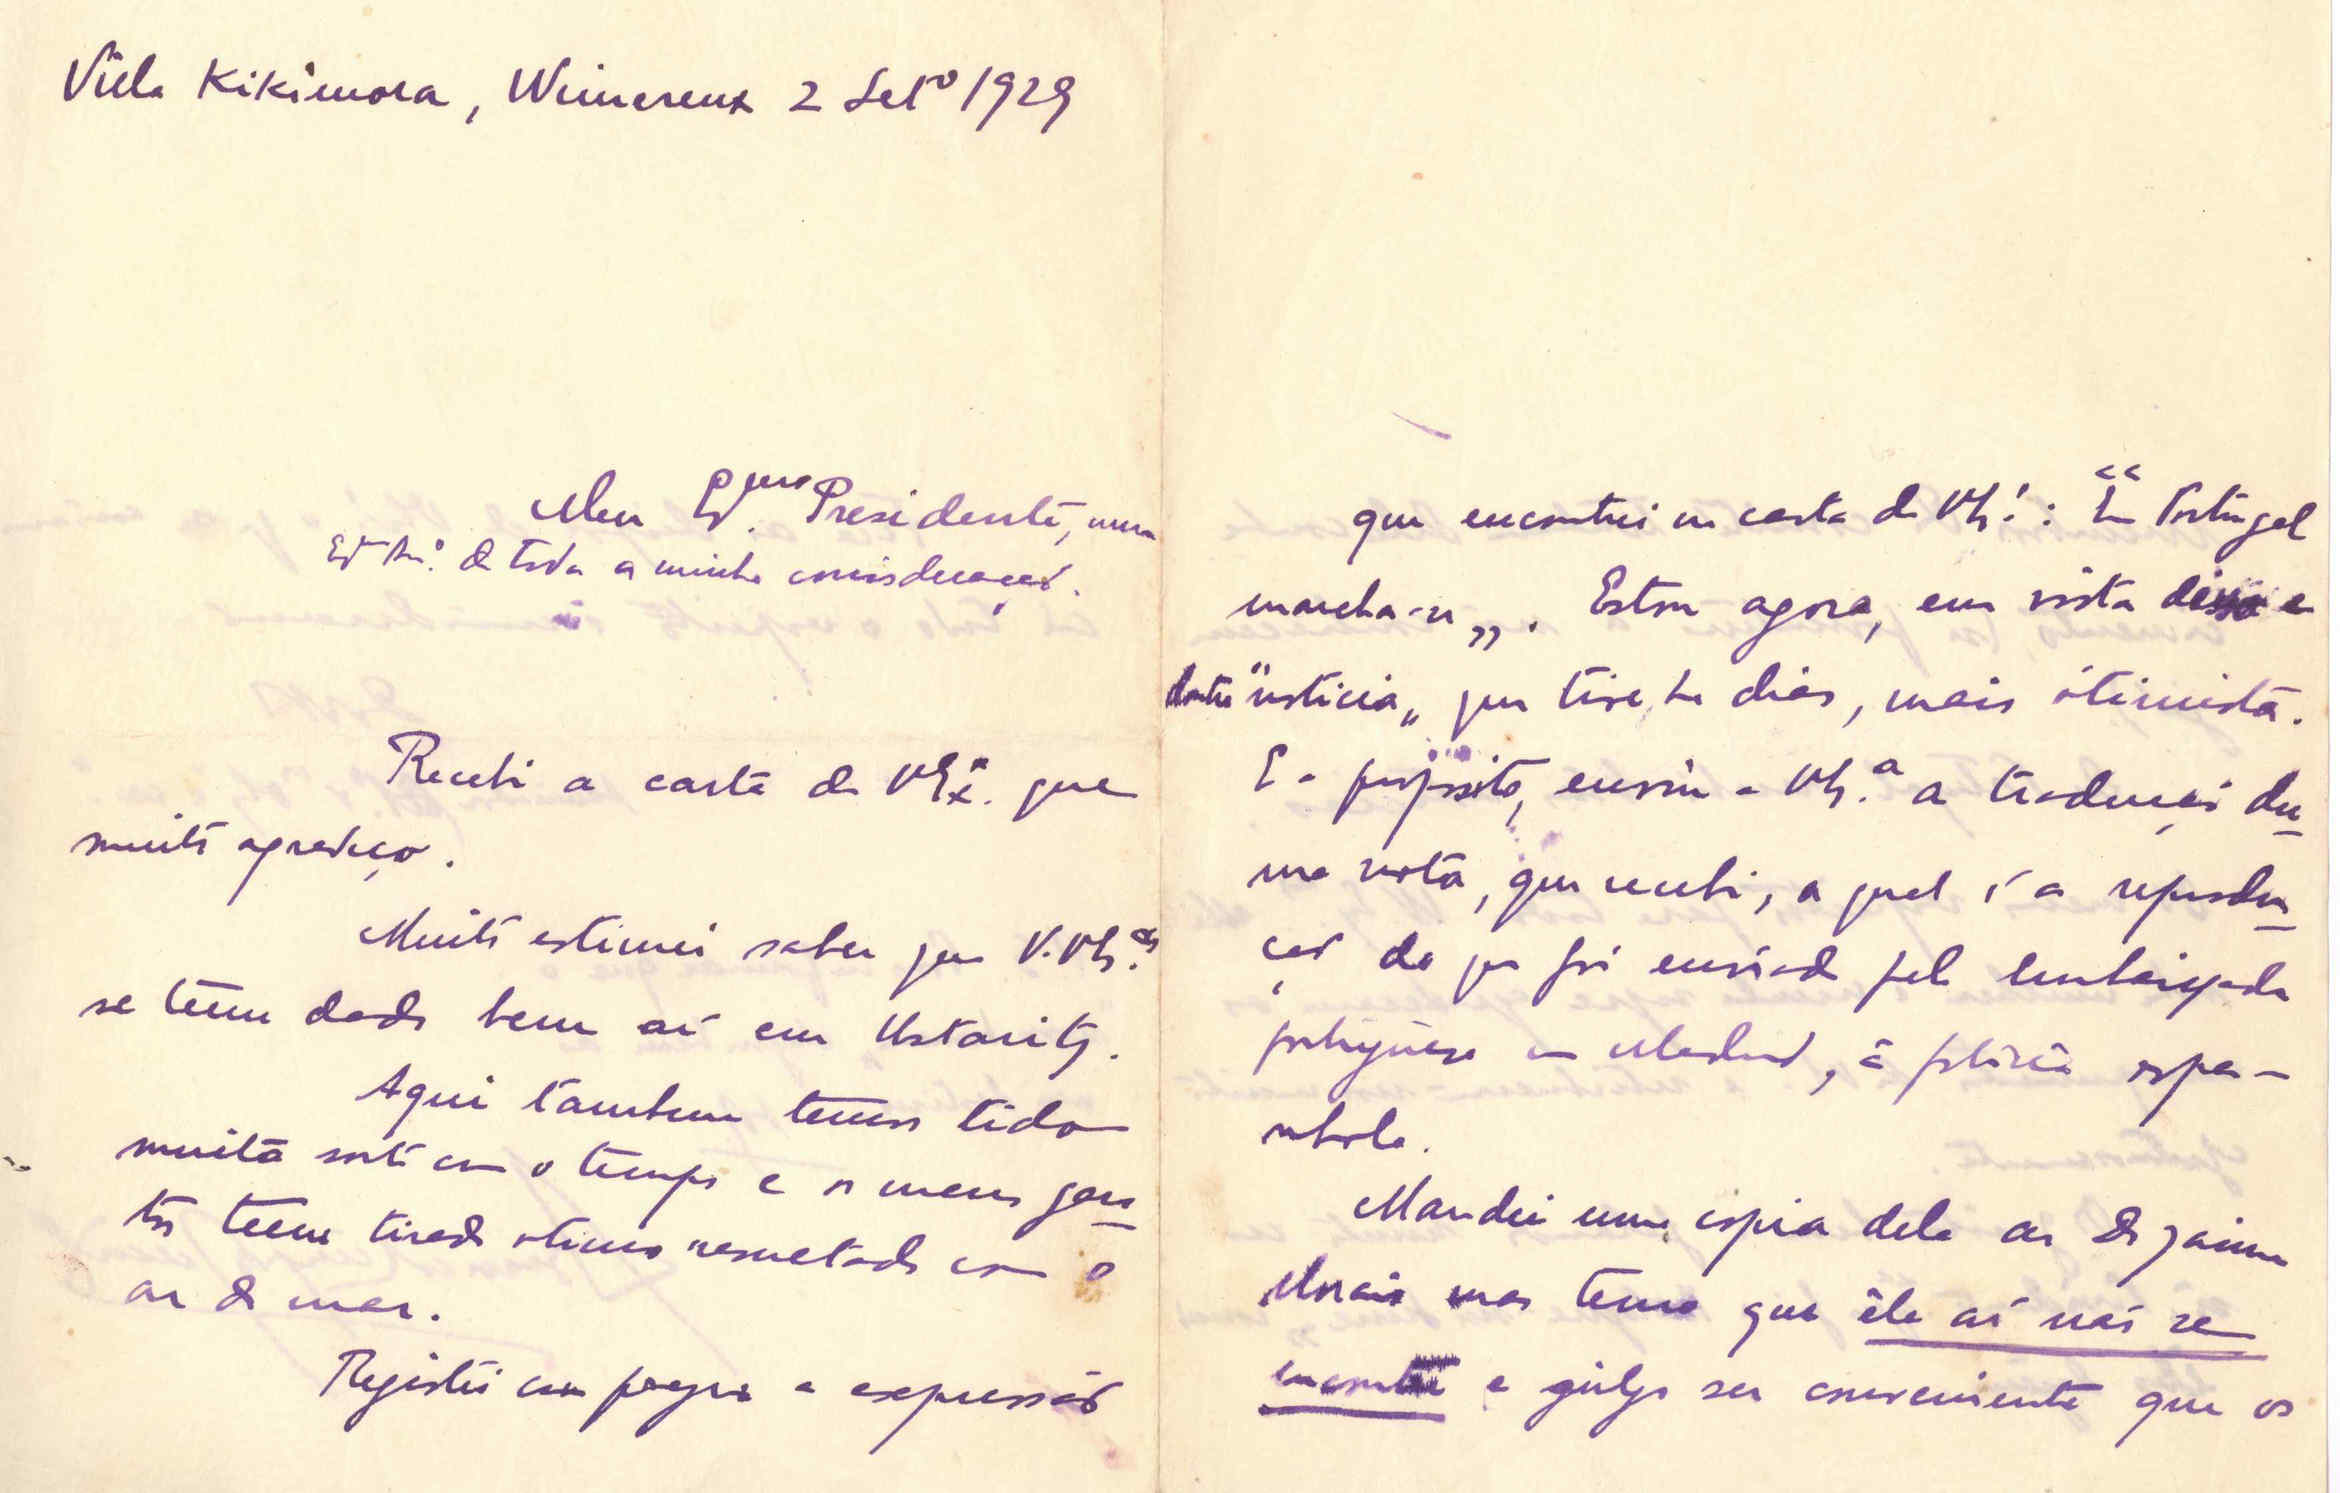 Vila Kikimora, Wimereux 2 Setº 1929
Meu Presidente, meu
de toda a minha consideração.
Recebi a carta de VEx.ª que
muito agradeço.
Muito estimei saber que V.VEx.as
se têem dado bem aí em Ustaritz.
Aqui tambem temos tido
muita sorte com o tempo e os meus garo-
tos teem tirado otimo resultado com o
ar do mar.
Registei com prazer a expressão
que encontrei na carta de VEx.ª: "Em Portugal
marcha-se". Estou agora, em vista disso e
doutra "noticia" que tive ha dias, mais ótimista.
E a proposito, envio a VEx.ª a tradução du-
ma nota, que recebi, a qual é a reprodu-
ção da que foi enviada pela Embaixada
portuguesa em Madrid, á policia espa-
nhola.
Mandei uma copia dela ao Dr Jaime
Morais mas temo que êle aí não se
encontre e julgo ser conveniente que os